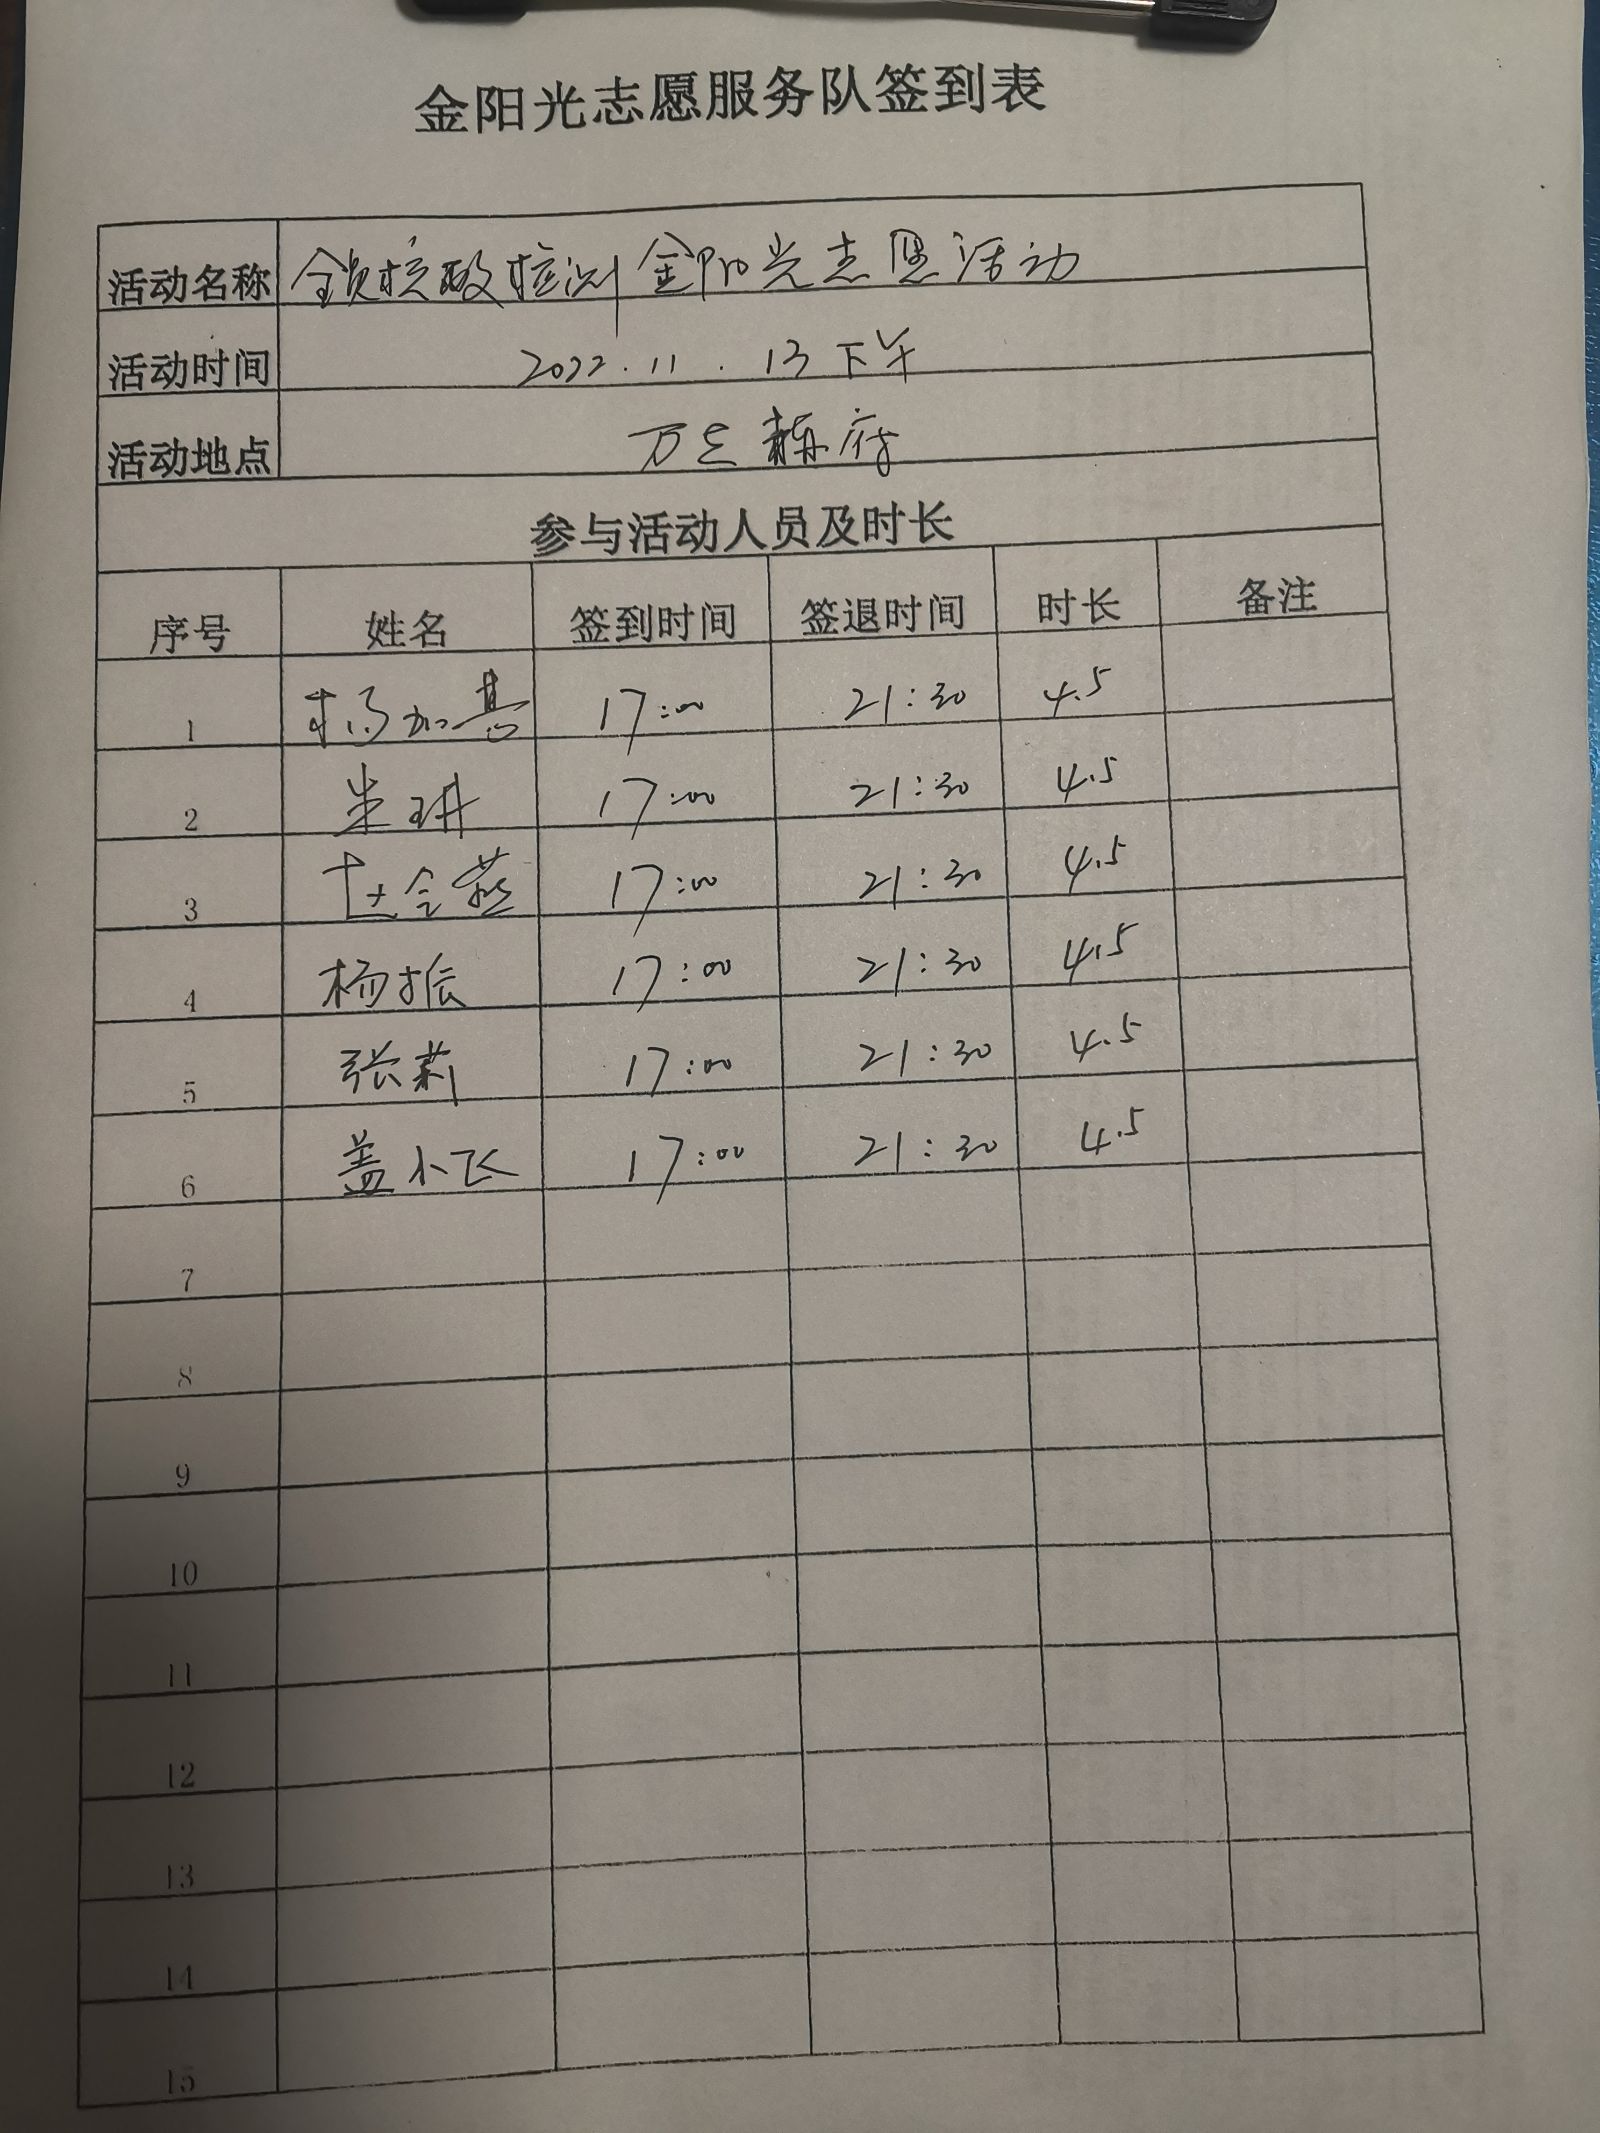 金阳光志愿服务队签到表
活动名称 全员核酸检测金阳光志愿活动
活动时间 2022.11.13下午
活动地点 万 府
参与活动人员及时长
序号 姓名 签到时间 签退时间 时长 备注
1 杨加基 17:00 21:30 4.5
2 朱琪 17:00 21:30 4.5
3 17:00 21:30 4.5
4 杨振 17:00 21:30 4.5
5 张莉 17:00 21:30 4.5
6 盖小飞 17:00 21:30 4.5
7
8
9
10
11
12
13
14
15